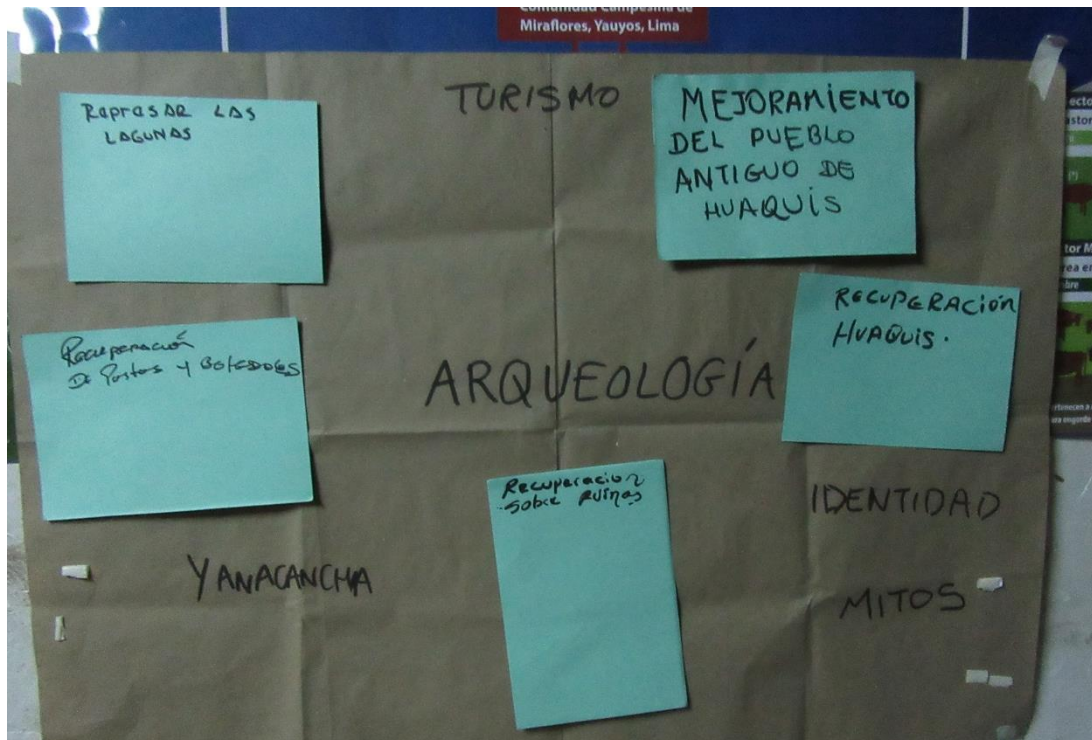 Comunidad Campesina de
Miraflores, Yauyos, Lima
TURISMO
Represar LAS
LAGUNAS
MEJORAMIENTO
DEL PUEBLO
ANTIGUO DE
HUAQUIS
Recuperación
De Pastos y Bofedales
ARQUEOLOGÍA
RECUPERACIÓN
HUAQUIS.
Recuperacion
sobre Ruinas
IDENTIDAD
YANACANCHA
MITOS